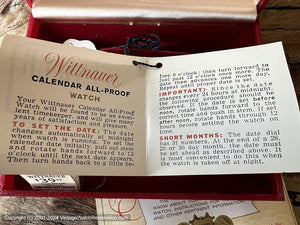 Wittnauer
CALENDAR ALL-PROOF
WATCH
Your Wittnauer Calendar All-Proof
Watch will be found to be an excel-
lent timekeeper, and to be
years of satisfaction and measure.
TO SET THE DATE: The date
changes automatically at midnight,
when running. To set watch to
calendar date initially, pull out stem
and rotate hands forward to 12
o'clock until the next date appears.
Then turn hands back to little be-
fore 9 o'clock, then turn forward to
just past 12 o'clock once more. The
date then advances one more day.
Repeat until proper date is set.
IMPORTANT: Since the date
changes every 24 hours at midnight,
the following procedure should be
observed. If the date is set before
noon, rotate hands forward to the
correct time and push in stem; if set
after noon, rotate hands through 12
hours before setting the watch.
SHORT MONTHS: The date dial
has 31 numbers. At the end of a 28,
29 or 30 day month, the date must
be set ahead as described above. It
is most convenient to do this when
the watch is taken off at night.
KNOW ABOUT
INSTRUCTIONS FOR
AND OTHER PERTINENT INFORMATION
Copyright © 2001-2024 VintageWatchRestoration.com